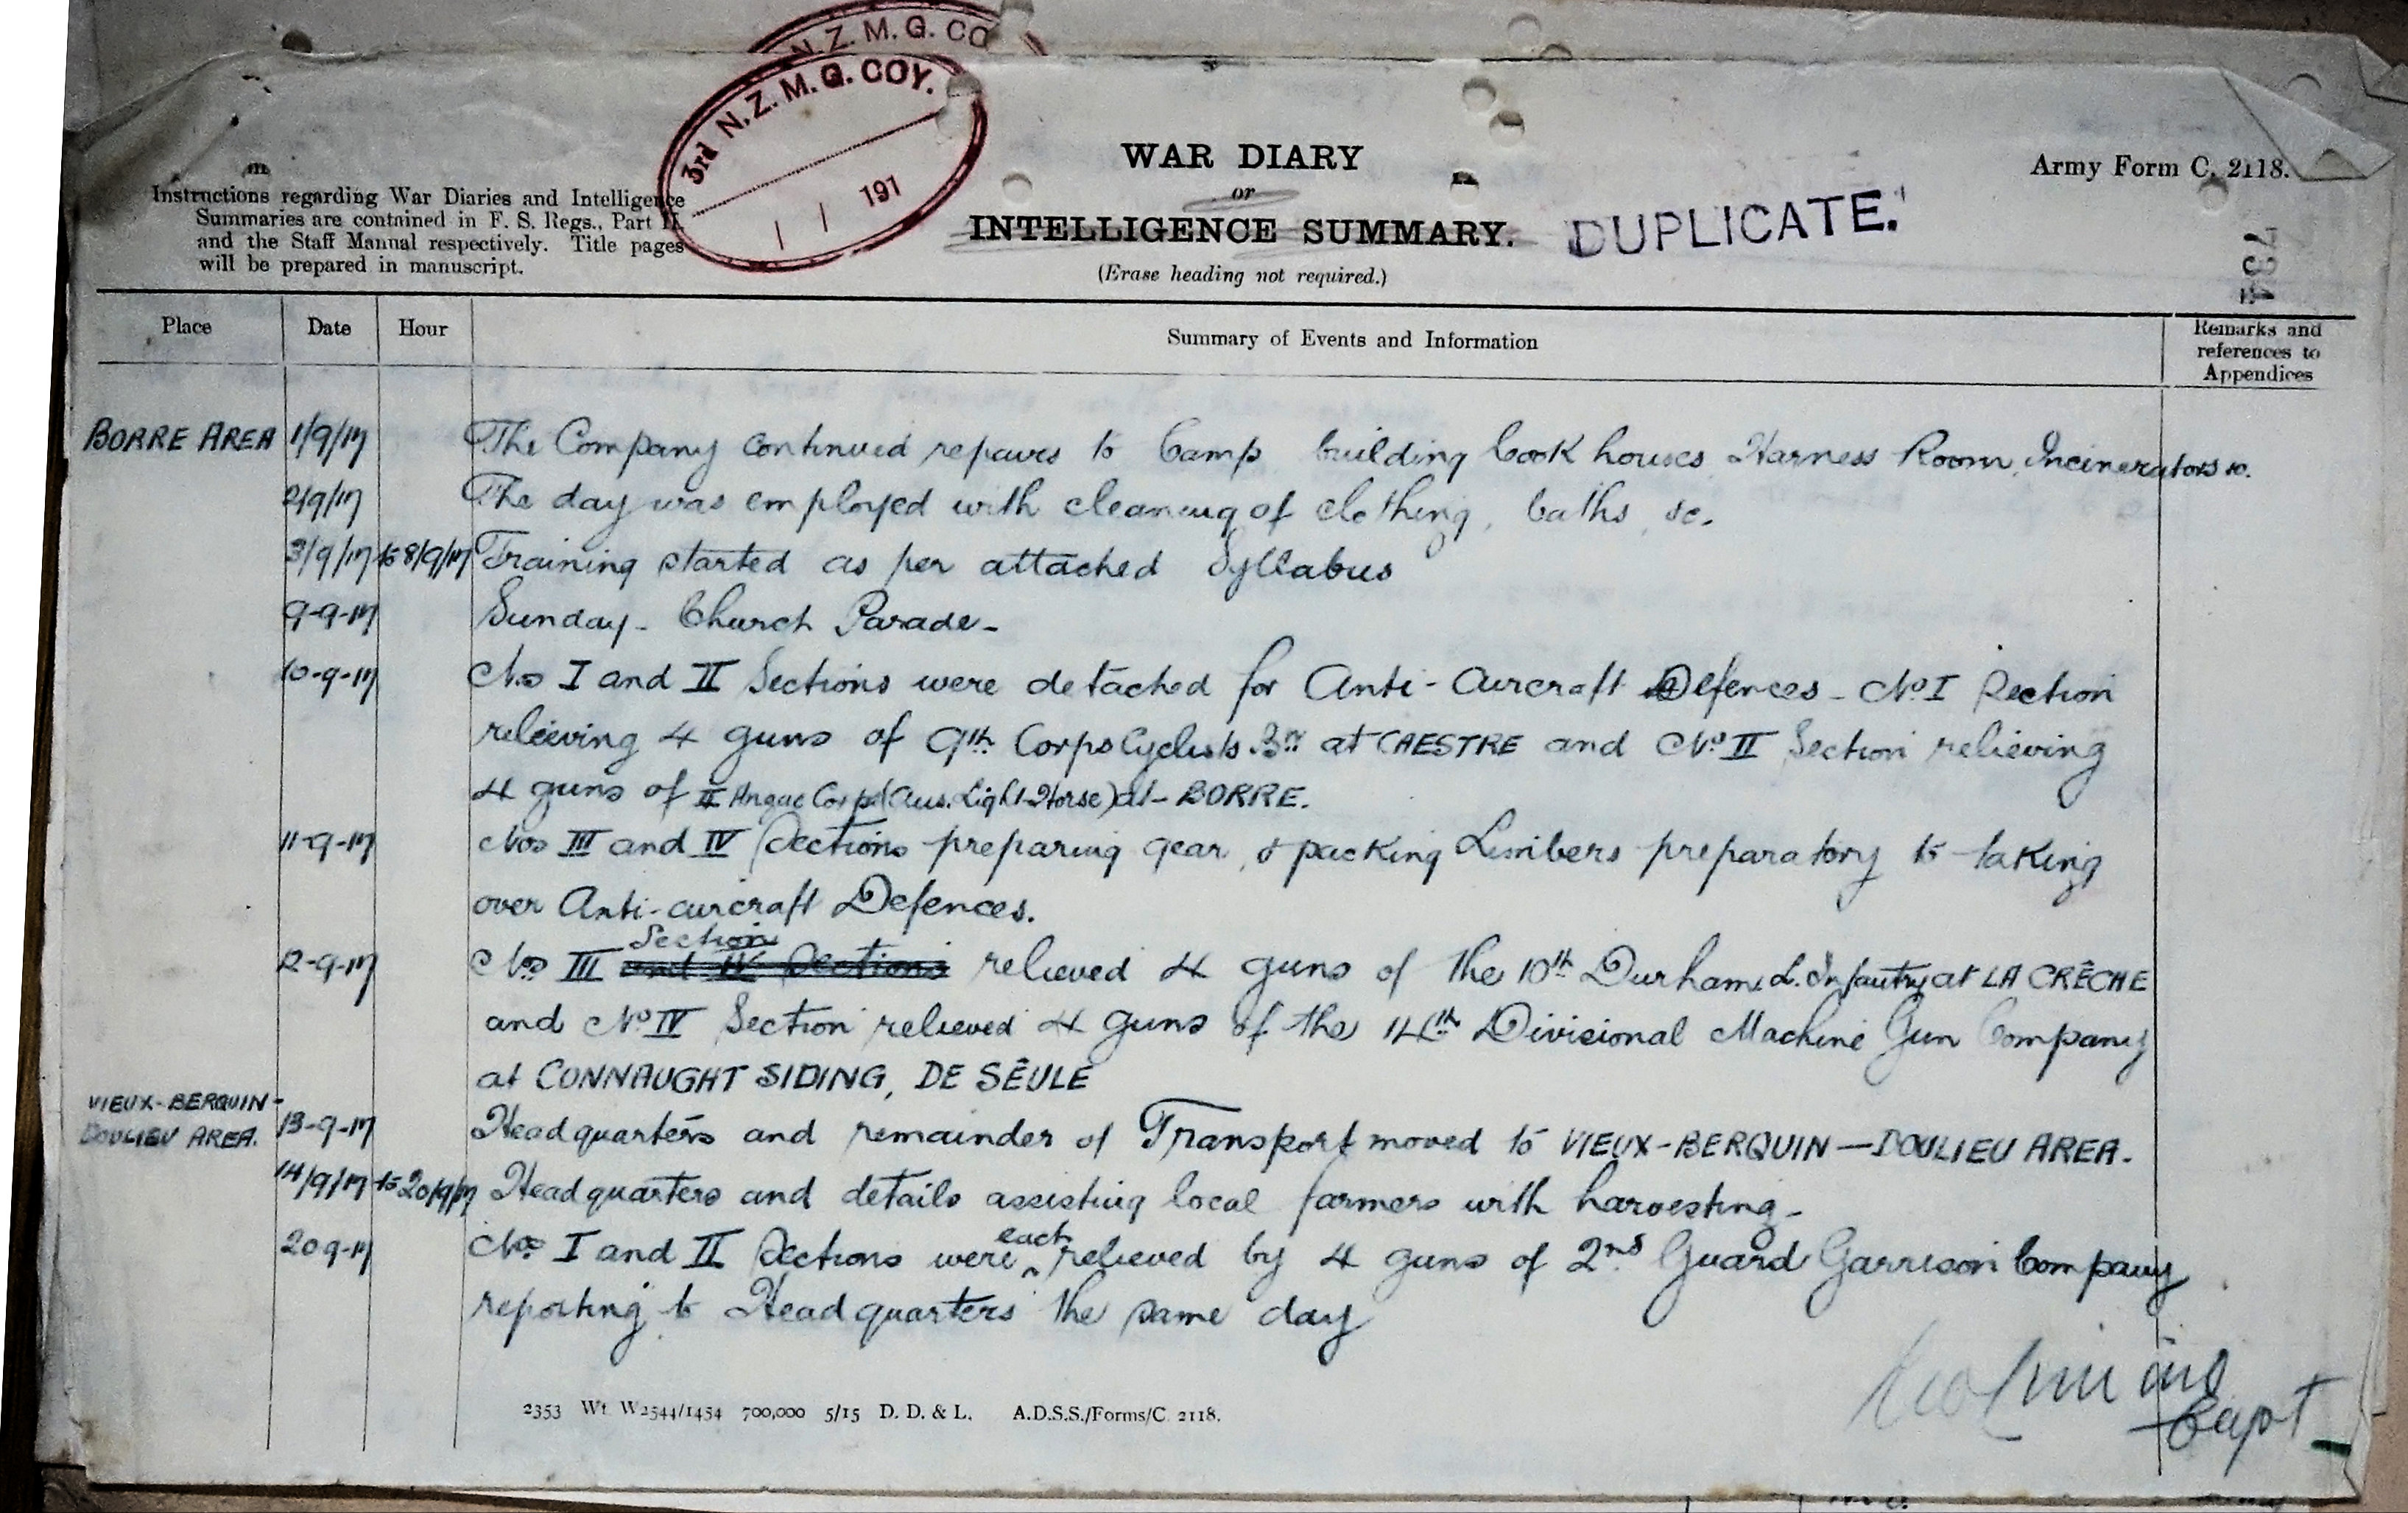 N. Z. M. G. CO
3rd N. Z. M. G. COY.
191
WAR DIARY
or
INTELLIGENCE SUMMARY.
(Erase heading not required.)
DUPLICATE.
Army Form C. 2118.
Instructions regarding War Diaries and Intelligence
Summaries are contained in F. S. Regs., Part II.
and the Staff Manual respectively. Title pages
will be prepared in manuscript.
Place Date Hour Summary of Events and Information Remarks and references to Appendices
BORRE AREA 1/9/17 The Company continued repairs to Camp building Cook houses, Harness Room, Incinerators &c.
2/9/17 The day was employed with cleaning of clothing, baths, &c.
3/9/17 to 8/9/17 Training started as per attached Syllabus
9-9-17 Sunday - Church Parade -
10-9-17 Nos I and II Sections were detached for Anti-Aircraft Defences - No I Section
relieving 4 guns of 9th Corps Cyclists Bn at CAESTRE and No II Section relieving
4 guns of II Anzac Corps (Aus. Light Horse) at - BORRE.
11-9-17 Nos III and IV Sections preparing gear, & packing Limbers preparatory to taking
over Anti-aircraft Defences.
12-9-17 Nos III and IV Sections Section relieved 4 guns of the 10th Durham L. Infantry at LA CRÊCHE
and No IV Section relieved 4 guns of the 14th Divisional Machine Gun Company
at CONNAUGHT SIDING, DE SÊULE
VIEUX-BERQUIN-
DOULIEU AREA. 13-9-17 Headquarters and remainder of Transport moved to VIEUX-BERQUIN — DOULIEU AREA.
14/9/17 to 20/9/17 Headquarters and details assisting local farmers with harvesting -
20 9-17 Nos I and II Sections were each relieved by 4 guns of 2nd Guard Garrison Company
reporting to Headquarters the same day
Capt
2353 Wt. W2544/1454 700,000 5/15 D. D. & L. A.D.S.S./Forms/C. 2118.